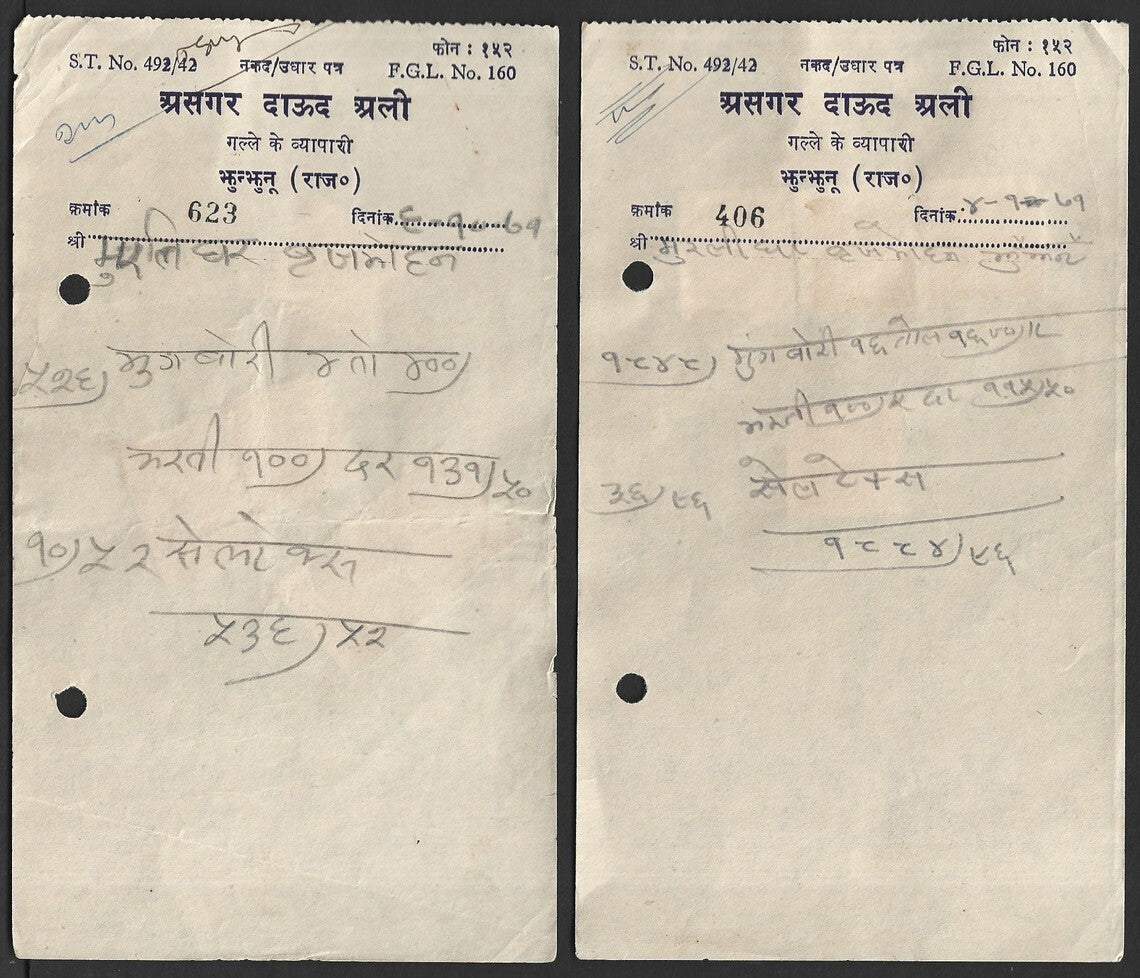 S.T. No. 492/42 नकद/उधार पत्र फोन : १५२
F.G.L. No. 160
असगर दाऊद अली
गल्ले के व्यापारी
झुन्झुनू (राज०)
क्रमांक 623 दिनांक ६-१०-७१
श्री मुरलिधर बृजमोहन
५२६) मुग बोरी ४ तो ४००)
भरती १००) दर १३१)५०
१०)५२ सेलटेक्स
५३६)५२
S.T. No. 492/42 नकद/उधार पत्र फोन : १५२
F.G.L. No. 160
असगर दाऊद अली
गल्ले के व्यापारी
झुन्झुनू (राज०)
क्रमांक 406 दिनांक ४-१-७१
श्री मुरलीधर बृजमोहन
१८४८) मुंग बोरी १६ तोल
भरती ११५)५०
३६)९६ सेल टेक्स
१८८४)९६